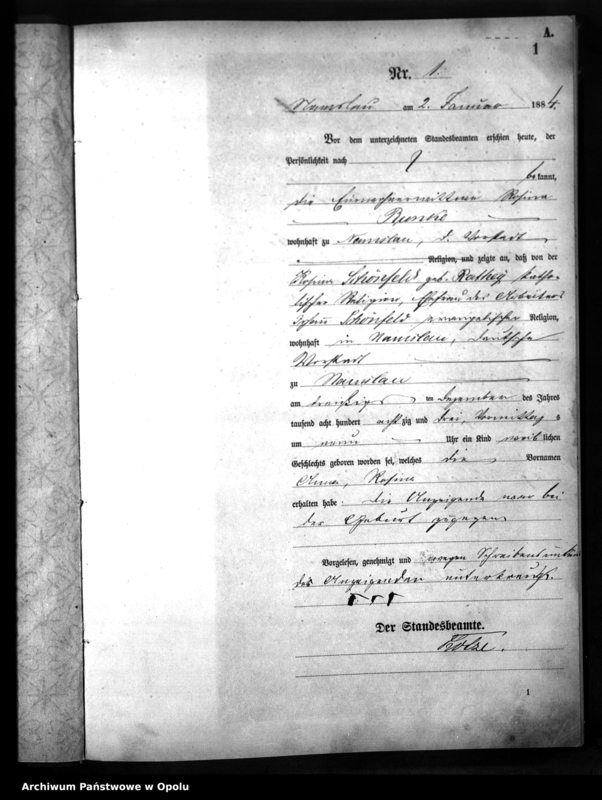 A.
1
Nr. 1.
Namslau am 2. Januar 1884.
Vor dem unterzeichneten Standesbeamten erschien heute, der
Persönlichkeit nach
bekannt,
die Rosina
Runke
wohnhaft zu Namslau, d. Vorstadt
Religion, und zeigte an, daß von der
Rosina Schönfeld geb. katho-
lischer Religion, Ehefrau des Arbeiters
Schönfeld evangelischer Religion,
wohnhaft in Namslau, deutsche
Vorstadt
zu Namslau
am dreißigsten Dezember des Jahres
tausend acht hundert achtzig und drei, Vormittag s
um neun Uhr ein Kind weiblichen
Geschlechts geboren worden sei, welches die Vornamen
Anna, Rosina
erhalten habe. die Anzeigende war bei
der Geburt zugegen
Vorgelesen, genehmigt und wegen
der Anzeigenden unterkreuzt.
+++
Der Standesbeamte.
1
Archiwum Państwowe w Opolu